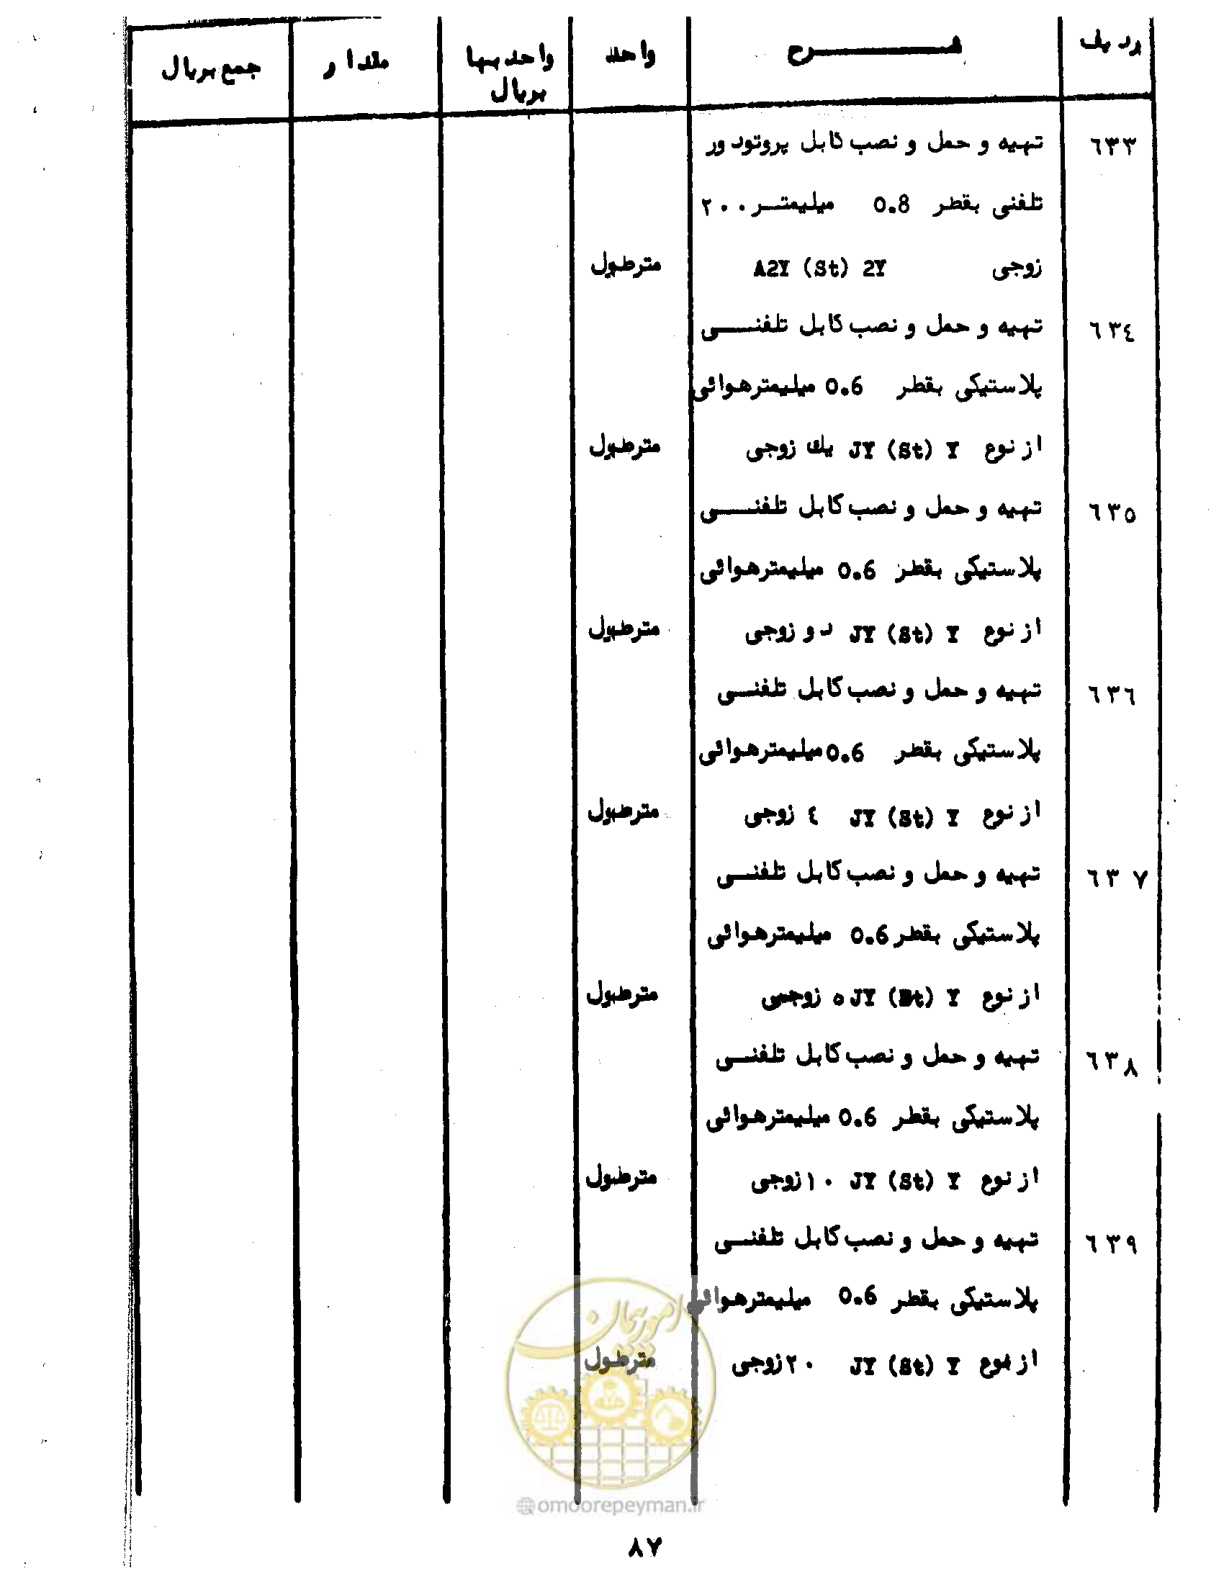 ردیف شـــــرح واحد واحد بها مقدار جمع بریال
بریال
٦٣٣ تهیه و حمل و نصب کابل پروتودور
تلفنی بقطر 0.8 میلیمتــر ٢٠٠
زوجی A2Y (St) 2Y مترطول
٦٣٤ تهیه و حمل و نصب کابل تلفنــــی
پلاستیکی بقطر 0.6 میلیمترهوائی
از نوع JY (St) Y یك زوجی مترطول
٦٣٥ تهیه و حمل و نصب کابل تلفنــــی
پلاستیکی بقطر 0.6 میلیمترهوائی
از نوع JY (St) Y دو زوجی مترطول
٦٣٦ تهیه و حمل و نصب کابل تلفنــی
پلاستیکی بقطر 0.6 میلیمترهوائی
از نوع JY (St) Y ٤ زوجی مترطول
٦٣٧ تهیه و حمل و نصب کابل تلفنــی
پلاستیکی بقطر 0.6 میلیمترهوائی
از نوع JY (St) Y ٥ زوجی مترطول
٦٣٨ تهیه و حمل و نصب کابل تلفنــی
پلاستیکی بقطر 0.6 میلیمترهوائی
از نوع JY (St) Y ١٠ زوجی مترطول
٦٣٩ تهیه و حمل و نصب کابل تلفنــی
پلاستیکی بقطر 0.6 میلیمترهوائی
از نوع JY (St) Y ٢٠ زوجی مترطول
امور پیمان
omoorepeyman.ir
٨٧